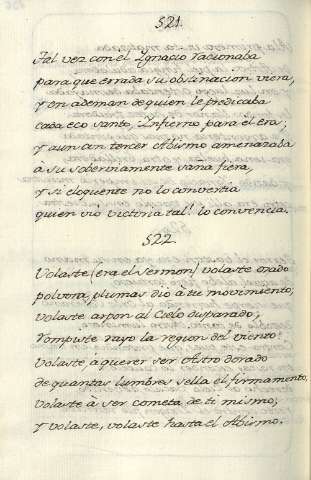 521.
Tal vez con el Ygnacio razonaba
para que errada su obstinacion viera,
y en ademan de quien le predicaba
cada eco santo, Ynfierno para el era;
y aun con tercer Abismo amenazaba
à su soberviamente saña fiera,
y si eloquente no lo convertia
quien vio victoria tal! lo convencia.
522.
Volaste (era el Sermon) volaste osado
polvora, plumas diò à tu movimiento,
volaste arpon al Cielo disparado,
rompiste rayo la region del viento
volaste à querer ser Astro dorado
de quantas lumbres sella el firmamento,
volaste à ser cometa de ti mismo,
y volaste, volaste hasta el Abismo.